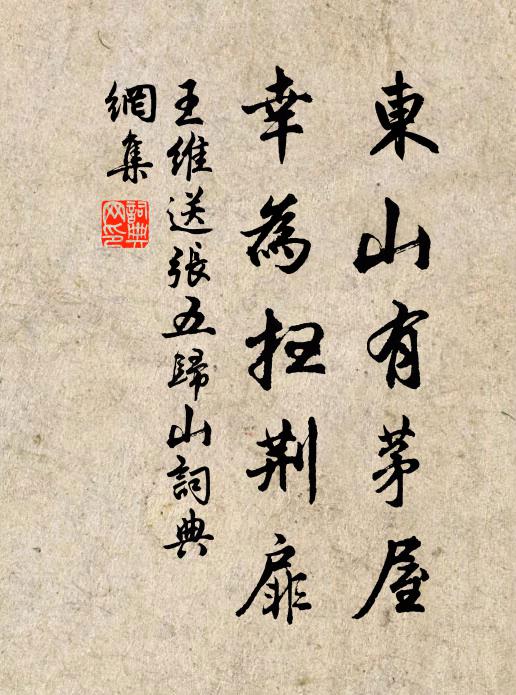 東山有茅屋
幸為掃荆扉
王維送張五歸山詞典
網集
詞典
网印